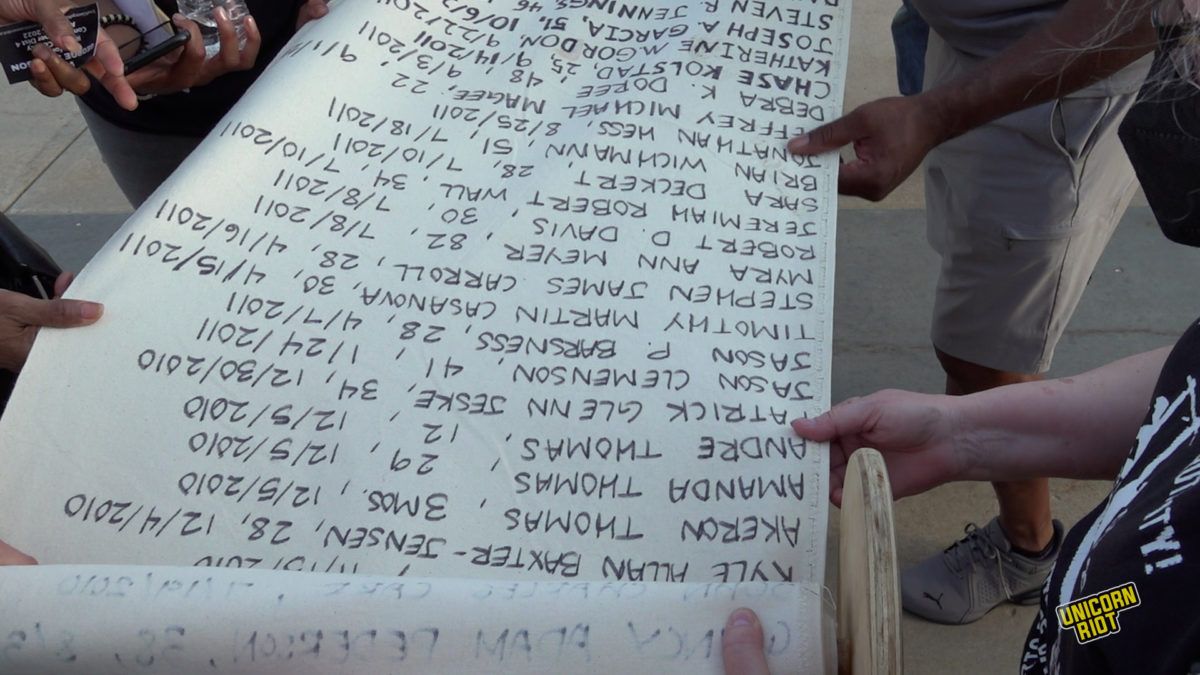 11/15/2010
KYLE ALLAN BAXTER-JENSEN, 28, 12/4/2010
AKERON THOMAS, 3MOS., 12/5/2010
AMANDA THOMAS, 29, 12/5/2010
ANDRE THOMAS, 12, 12/5/2010
PATRICK GLENN JESKE, 34, 12/30/2010
JASON CLEMENSON, 41, 1/24/2011
JASON P. BARSNESS, 28, 4/7/2011
TIMOTHY MARTIN CASANOVA, 30, 4/15/2011
STEPHEN JAMES CARROLL, 28, 4/16/2011
MYRA ANN MEYER, 82, 7/8/2011
ROBERT D. DAVIS, 30, 7/8/2011
JEREMIAH ROBERT WALL, 34, 7/10/2011
SARA DECKERT, 28, 7/10/2011
BRIAN WICHMANN, 51, 7/18/2011
JONATHAN HESS, 8/25/2011
JEFFREY MICHAEL MAGEE, 22, 9/3/2011
DEBRA K. DOREE, 48, 9/14/2011
CHASE KOLSTAD, 9/22/2011
KATHERINE M. GORDON,
JOSEPH A. GARCIA, 51,
STEVEN R. JENNINGS, 46
UNICORN
RIOT